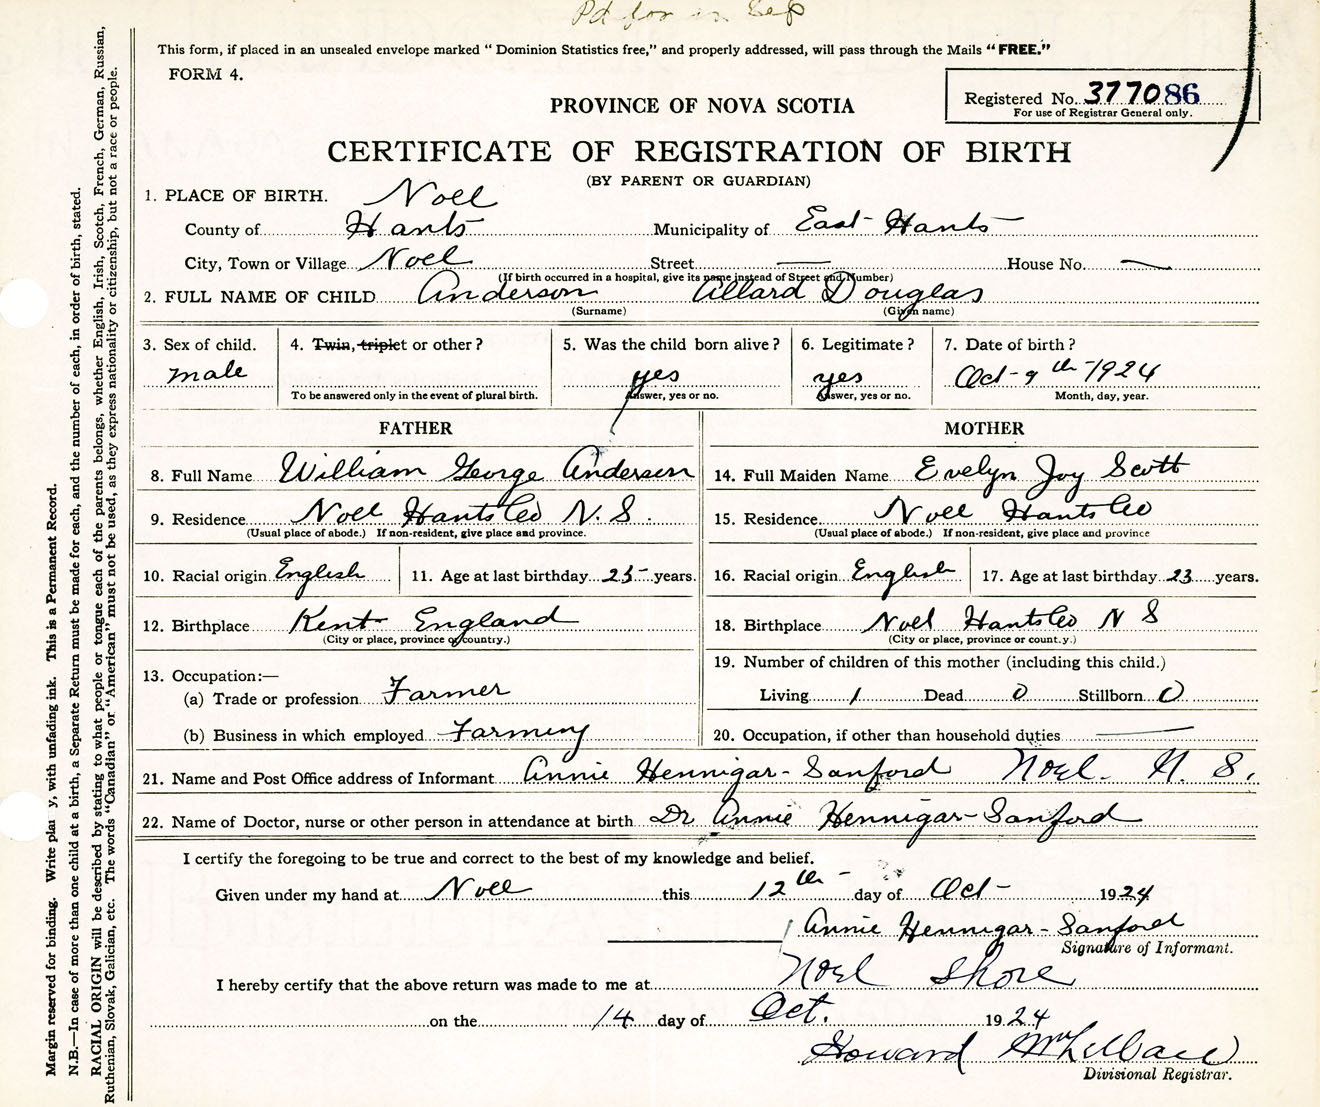 Pd for in Sep
This form, if placed in an unsealed envelope marked " Dominion Statistics free," and properly addressed, will pass through the Mails "FREE."
FORM 4.
Registered No. 377086
For use of Registrar General only.
PROVINCE OF NOVA SCOTIA
CERTIFICATE OF REGISTRATION OF BIRTH
(BY PARENT OR GUARDIAN)
1. PLACE OF BIRTH. Noel
County of Hants Municipality of East Hants
City, Town or Village Noel Street — House No. —
(If birth occurred in a hospital, give its name instead of Street and Number)
2. FULL NAME OF CHILD Anderson Allard Douglas
(Surname) (Given name)
3. Sex of child. 4. Twin, triplet or other? 5. Was the child born alive? 6. Legitimate? 7. Date of birth?
male yes yes Oct - 9th - 1924
To be answered only in the event of plural birth. Answer, yes or no. Answer, yes or no. Month, day, year.
FATHER MOTHER
8. Full Name William George Anderson 14. Full Maiden Name Evelyn Joy Scott
9. Residence Noel Hants Co N. S. 15. Residence Noel Hants Co
(Usual place of abode.) If non-resident, give place and province. (Usual place of abode.) If non-resident, give place and province
10. Racial origin English 11. Age at last birthday 25 years. 16. Racial origin English 17. Age at last birthday 23 years.
12. Birthplace Kent England 18. Birthplace Noel Hants Co N S
(City or place, province or country.) (City or place, province or count.y.)
13. Occupation:— 19. Number of children of this mother (including this child.)
(a) Trade or profession Farmer Living 1 Dead 0 Stillborn 0
(b) Business in which employed Farming 20. Occupation, if other than household duties —
21. Name and Post Office address of Informant Annie Hennigar-Sanford Noel. N. S.
22. Name of Doctor, nurse or other person in attendance at birth Dr Annie Hennigar-Sanford
I certify the foregoing to be true and correct to the best of my knowledge and belief.
Given under my hand at Noel this 12th day of Oct - 1924
Annie Hennigar-Sanford
Signature of Informant.
I hereby certify that the above return was made to me at Noel Shore
on the 14 day of Oct. 1924
Howard
Divisional Registrar.
Margin reserved for binding. Write plai y, with unfading ink. This is a Permanent Record.
N.B.—In case of more than one child at a birth, a Separate Return must be made for each, and the number of each, in order of birth, stated.
RACIAL ORIGIN will be described by stating to what people or tongue each of the parents belongs, whether English, Irish, Scotch, French, German, Russian,
Ruthenian, Slovak, Galician, etc. The words "Canadian" or "American" must not be used, as they express nationality or citizenship, but not a race or people.